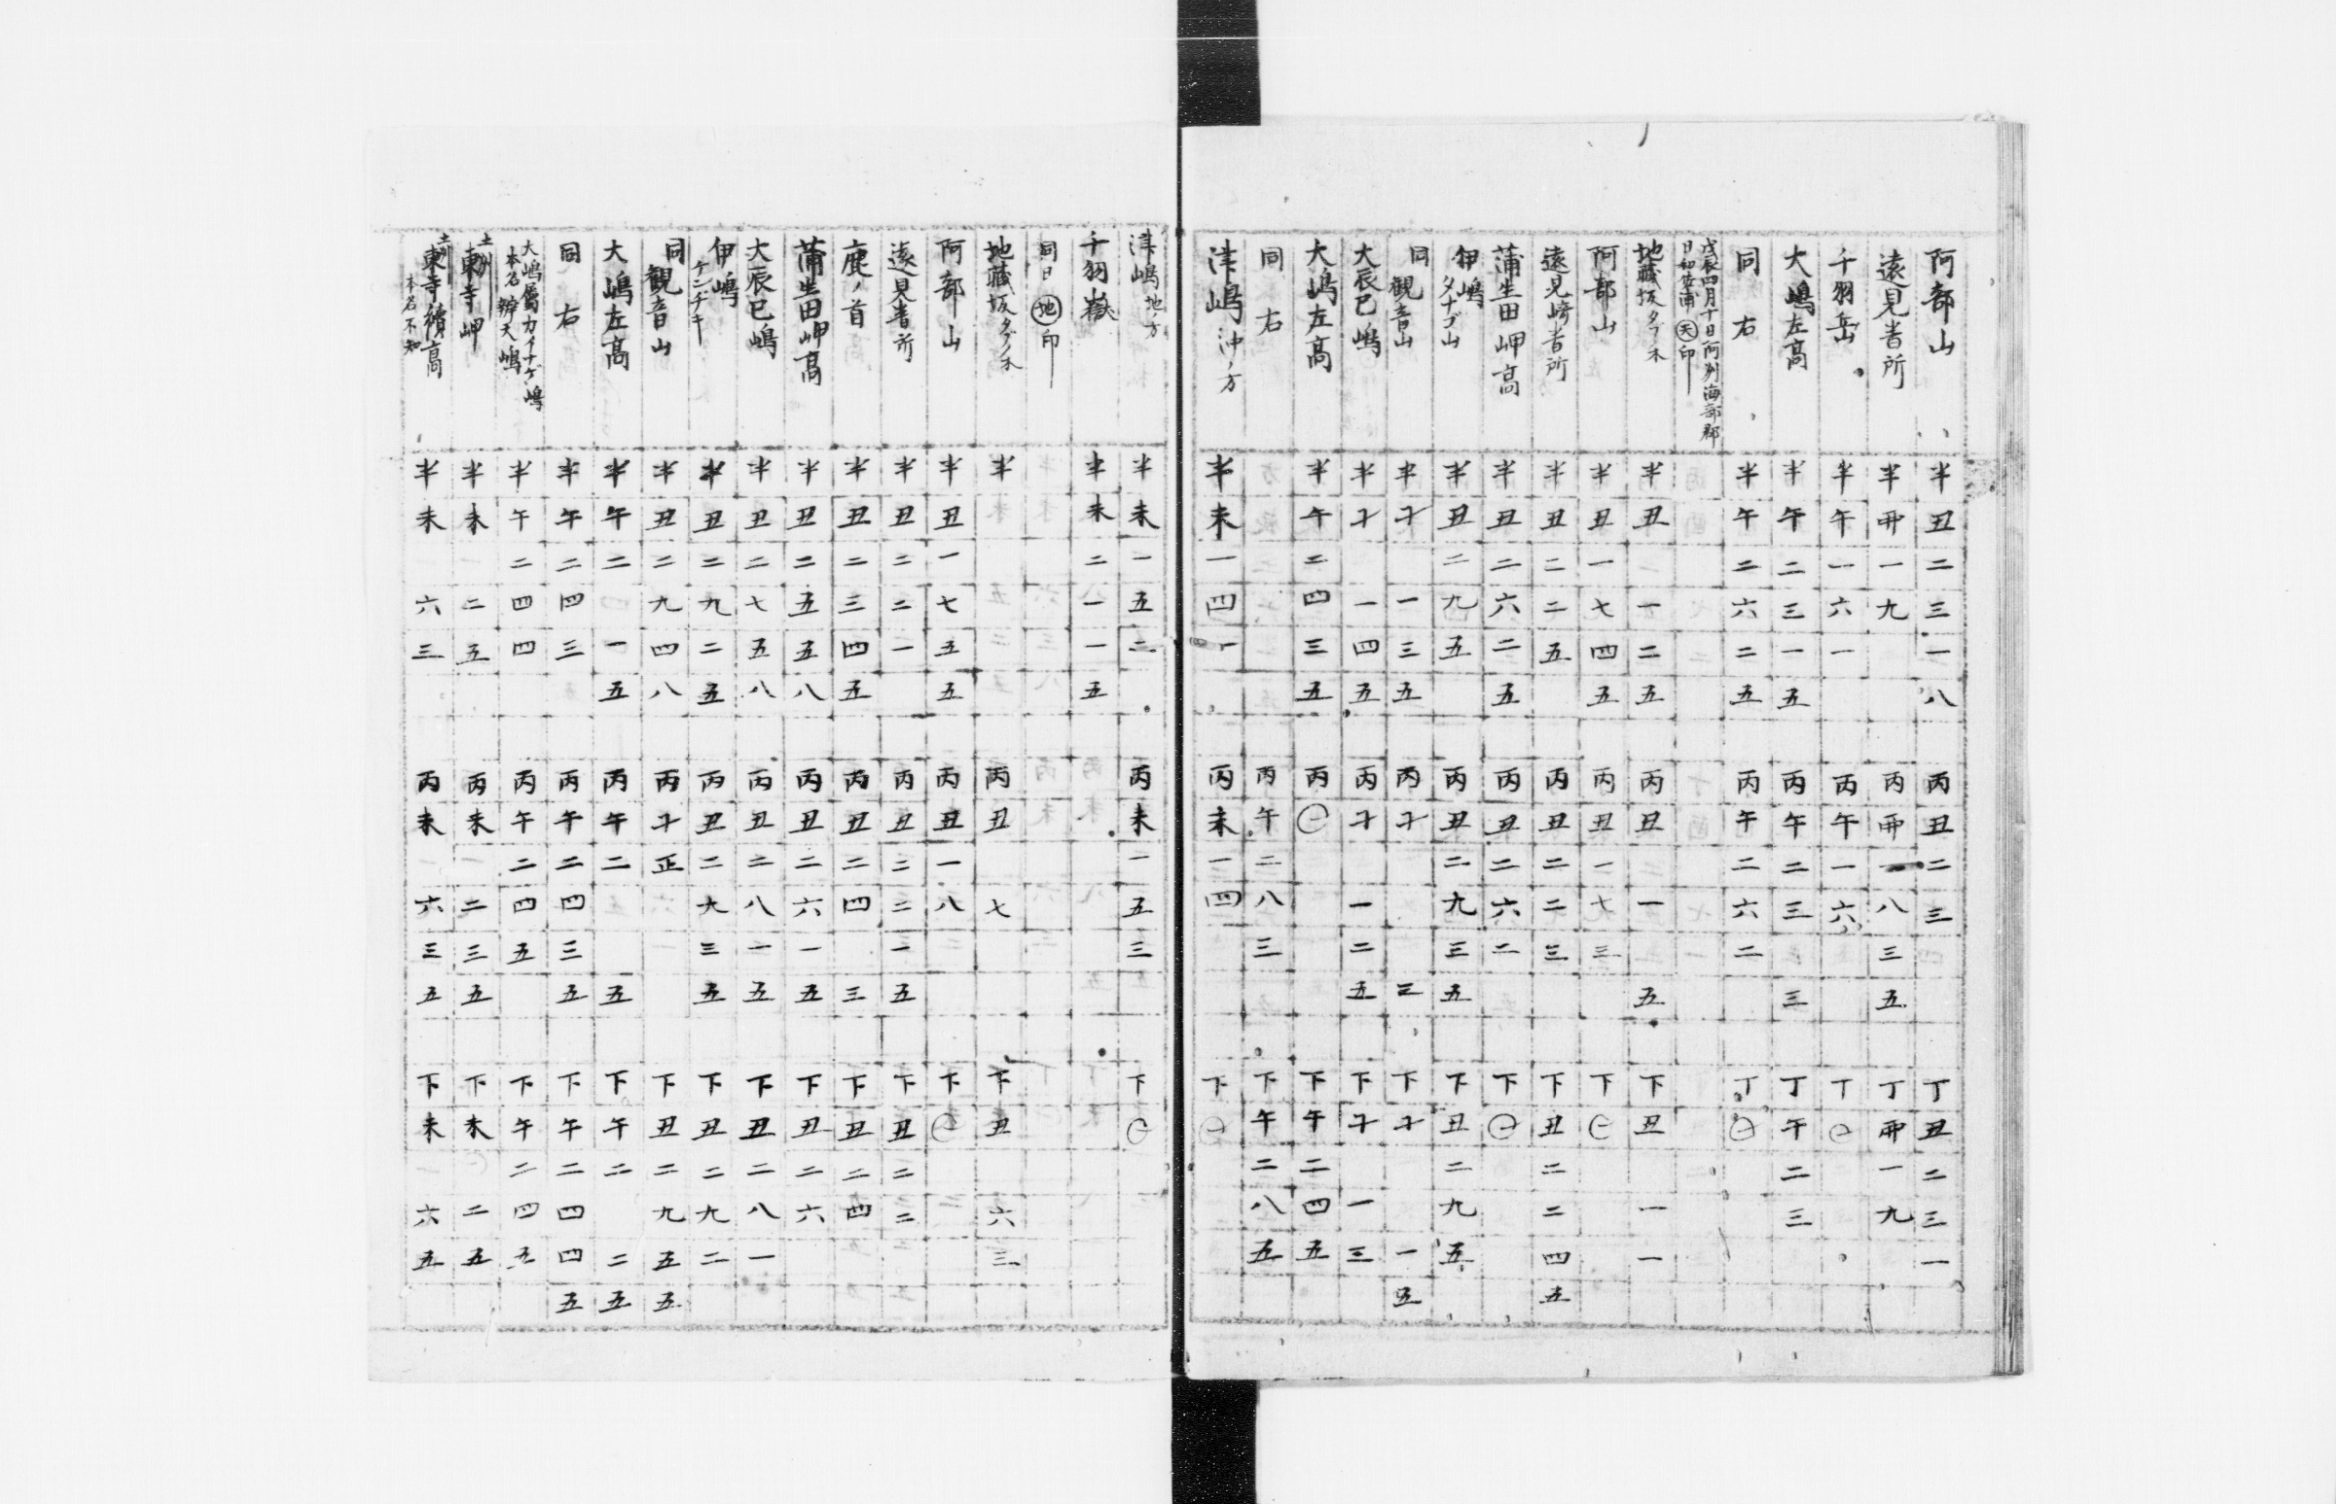 阿部山 半丑二三一八 丙丑二三 丁丑二三一
遠見番所 半 一九 丙 一八三五 丁 一九
千羽岳 半午一六一 丙午一六 丁㊀
大嶋左高 半午二三一五 丙午二三 三 丁午二三
同右 半午二六二五 丙午二六二 丁㊀
戊辰四月十日阿州海部郡
日和佐浦㊝印
地蔵坂タブノ木 半丑 一二五 丙丑 一 五 下丑 一一
阿部山 半丑一七四五 丙丑一七三 下㊀
遠見崎番所 半丑二二五 丙丑二二三 下丑二二四五
蒲生田岬高 半丑二六二五 丙丑二六二 下㊀
伊嶋タナゴ山 半丑二九五 丙丑二九三五 下丑二九五
同観音山 半子 一三五 丙子 三 下子 一五
大辰巳嶋 半子 一四五 丙子 一二五 下子 一三
大嶋左高 半午二四三五 丙㊀ 下午二四五
同右 丙午二八三 下午二八五
津嶋沖ノ方 半未一四一 丙未一四 下㊀
津嶋地ノ方 半未一五二 丙未一五三 下㊀
千羽嶽 半未二一一五
同日㊞印
地蔵坂タブノ木 半 丙丑 七 下丑 六三
阿部山 半丑一七五五 丙丑一八 下㊀
遠見番所 半丑二二一 丙丑二二一五 下丑二二
鹿ノ首 半丑二三四五 丙丑二四 三 下丑二四
蒲生田岬高 半丑二五五八 丙丑二六一五 下丑二六
大辰巳嶋 半丑二七五八 丙丑二八一五 下丑二八一
伊嶋ケンヂキ 半丑二九二五 丙丑二九三五 下丑二九二
同観音山 半丑二九四八 丙子正 下丑二九五五
大嶋左高 半午二 一五 丙午二 五 下午二 二五
同右 半午二四三 丙午二四三五 下午二四四五
大嶋属カイナゲ嶋
本名弁天嶋 半午二四四 丙午二四五 下午二四五
土州東寺岬 半未 二五 丙未 二三五 下未 二五
土州東寺嶺高
本名不知 半未 六三 丙未 六三五 下未 六五